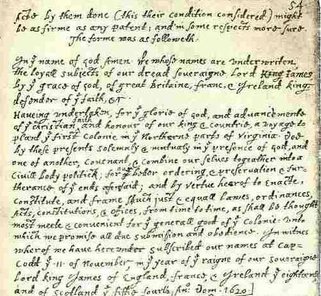 54
scte by them done (this their condition considered) might
be as firme as any patent; and in some respects more sure.
The forme was as followeth.
In yᵉ name of god Amen. We whose names are underwriten,
the loyall subjects of our dread soveraigne Lord King James
by yᵉ grace of god, of great Britaine, franc, & Ireland king,
defender of yᵉ faith, &c.
Haveing undertaken, for yᵉ glorie of god, and advancemente
of yᵉ christian faith and honour of our king & countrie, a voyage to
plant yᵉ first colonie in yᵉ Northerne parts of Virginia. Doe
by these presents solemnly & mutualy in yᵉ presence of god, and
one of another, covenant, & combine our selves togeather into a
Civill body politick; for our better ordering, & preservation & fur-
therance of yᵉ ends aforsaid; and by vertue hearof to enacte,
constitute, and frame such just & equall Lawes, ordinances,
Acts, constitutions, & offices, from time to time, as shall be thought
most meete & convenient for yᵉ generall good of yᵉ colonie: unto
which we promise all due submission and obedience. In witnes
wherof we have hereunder subscribed our names at Cap-
Codd yᵉ ·11· of November, in yᵉ year of yᵉ raigne of our soveraigne
Lord king James of England, france, & Ireland yᵉ eighteenth
and of Scotland yᵉ fiftie fourth. Anº: Dom. 1620.